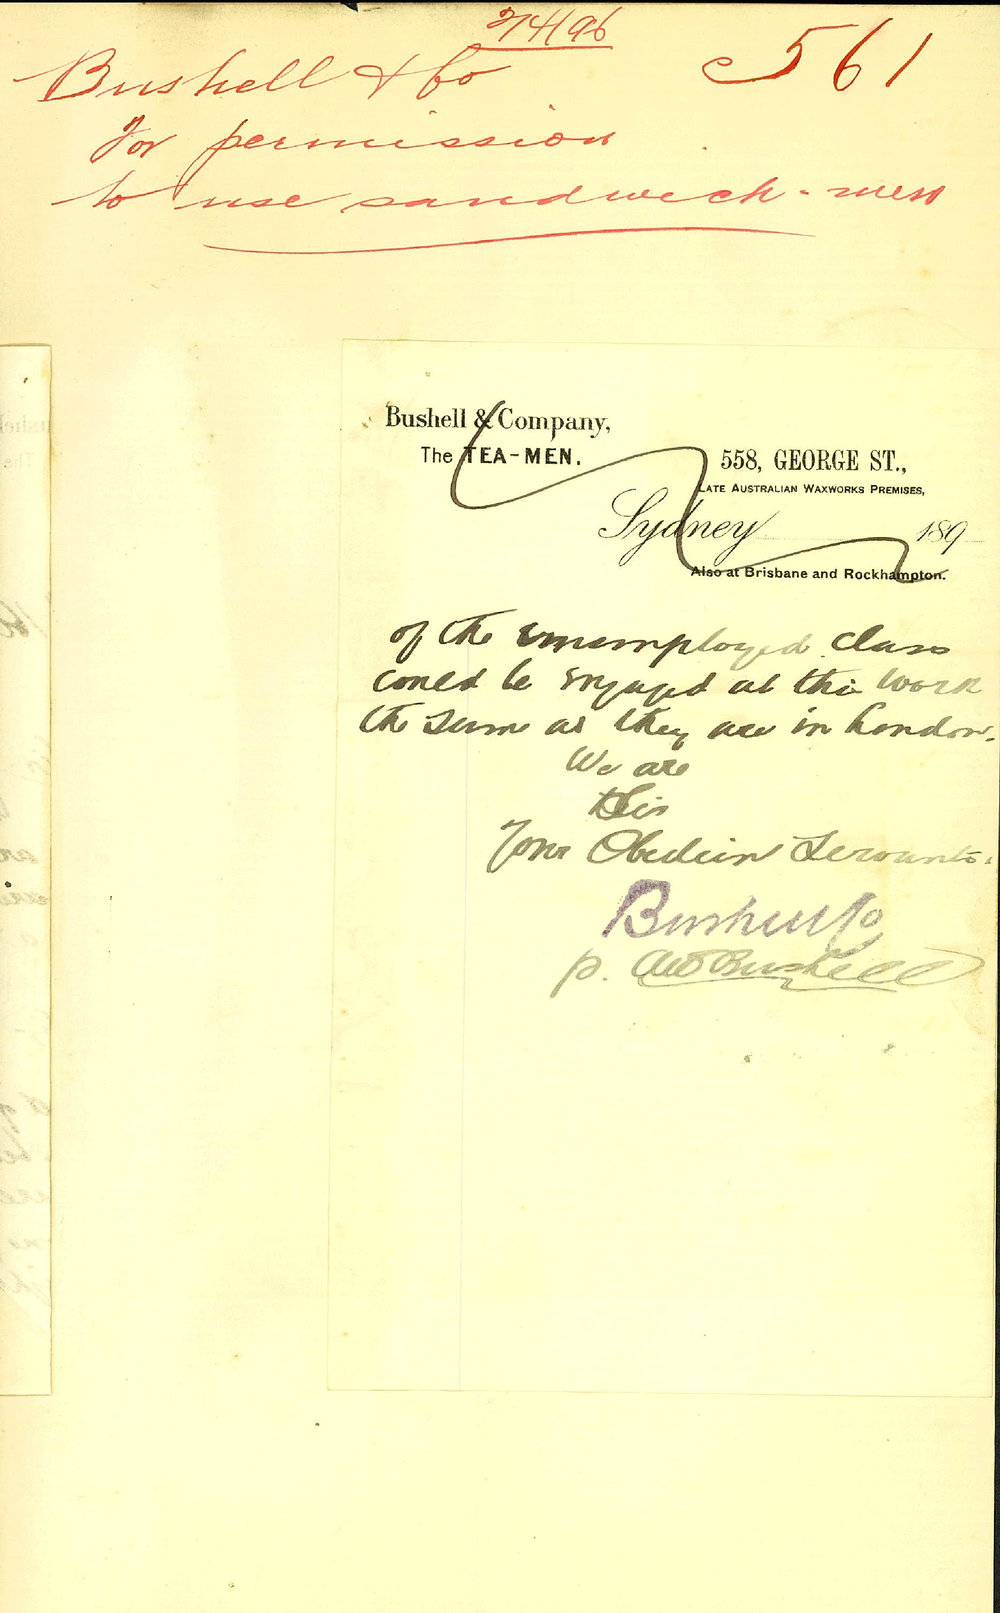 2/4/96
561
Bushell & Co
For permission
to use sandwich-men
Bushell & Company,
The TEA-MEN.
558, GEORGE ST.,
LATE AUSTRALIAN WAXWORKS PREMISES,
Sydney 189
Also at Brisbane and Rockhampton.
of the unemployed class
could be engaged at this work
the same as they are in London.
We are
Sir
Your Obedien Servants.
Bushell Co
p. Bushell